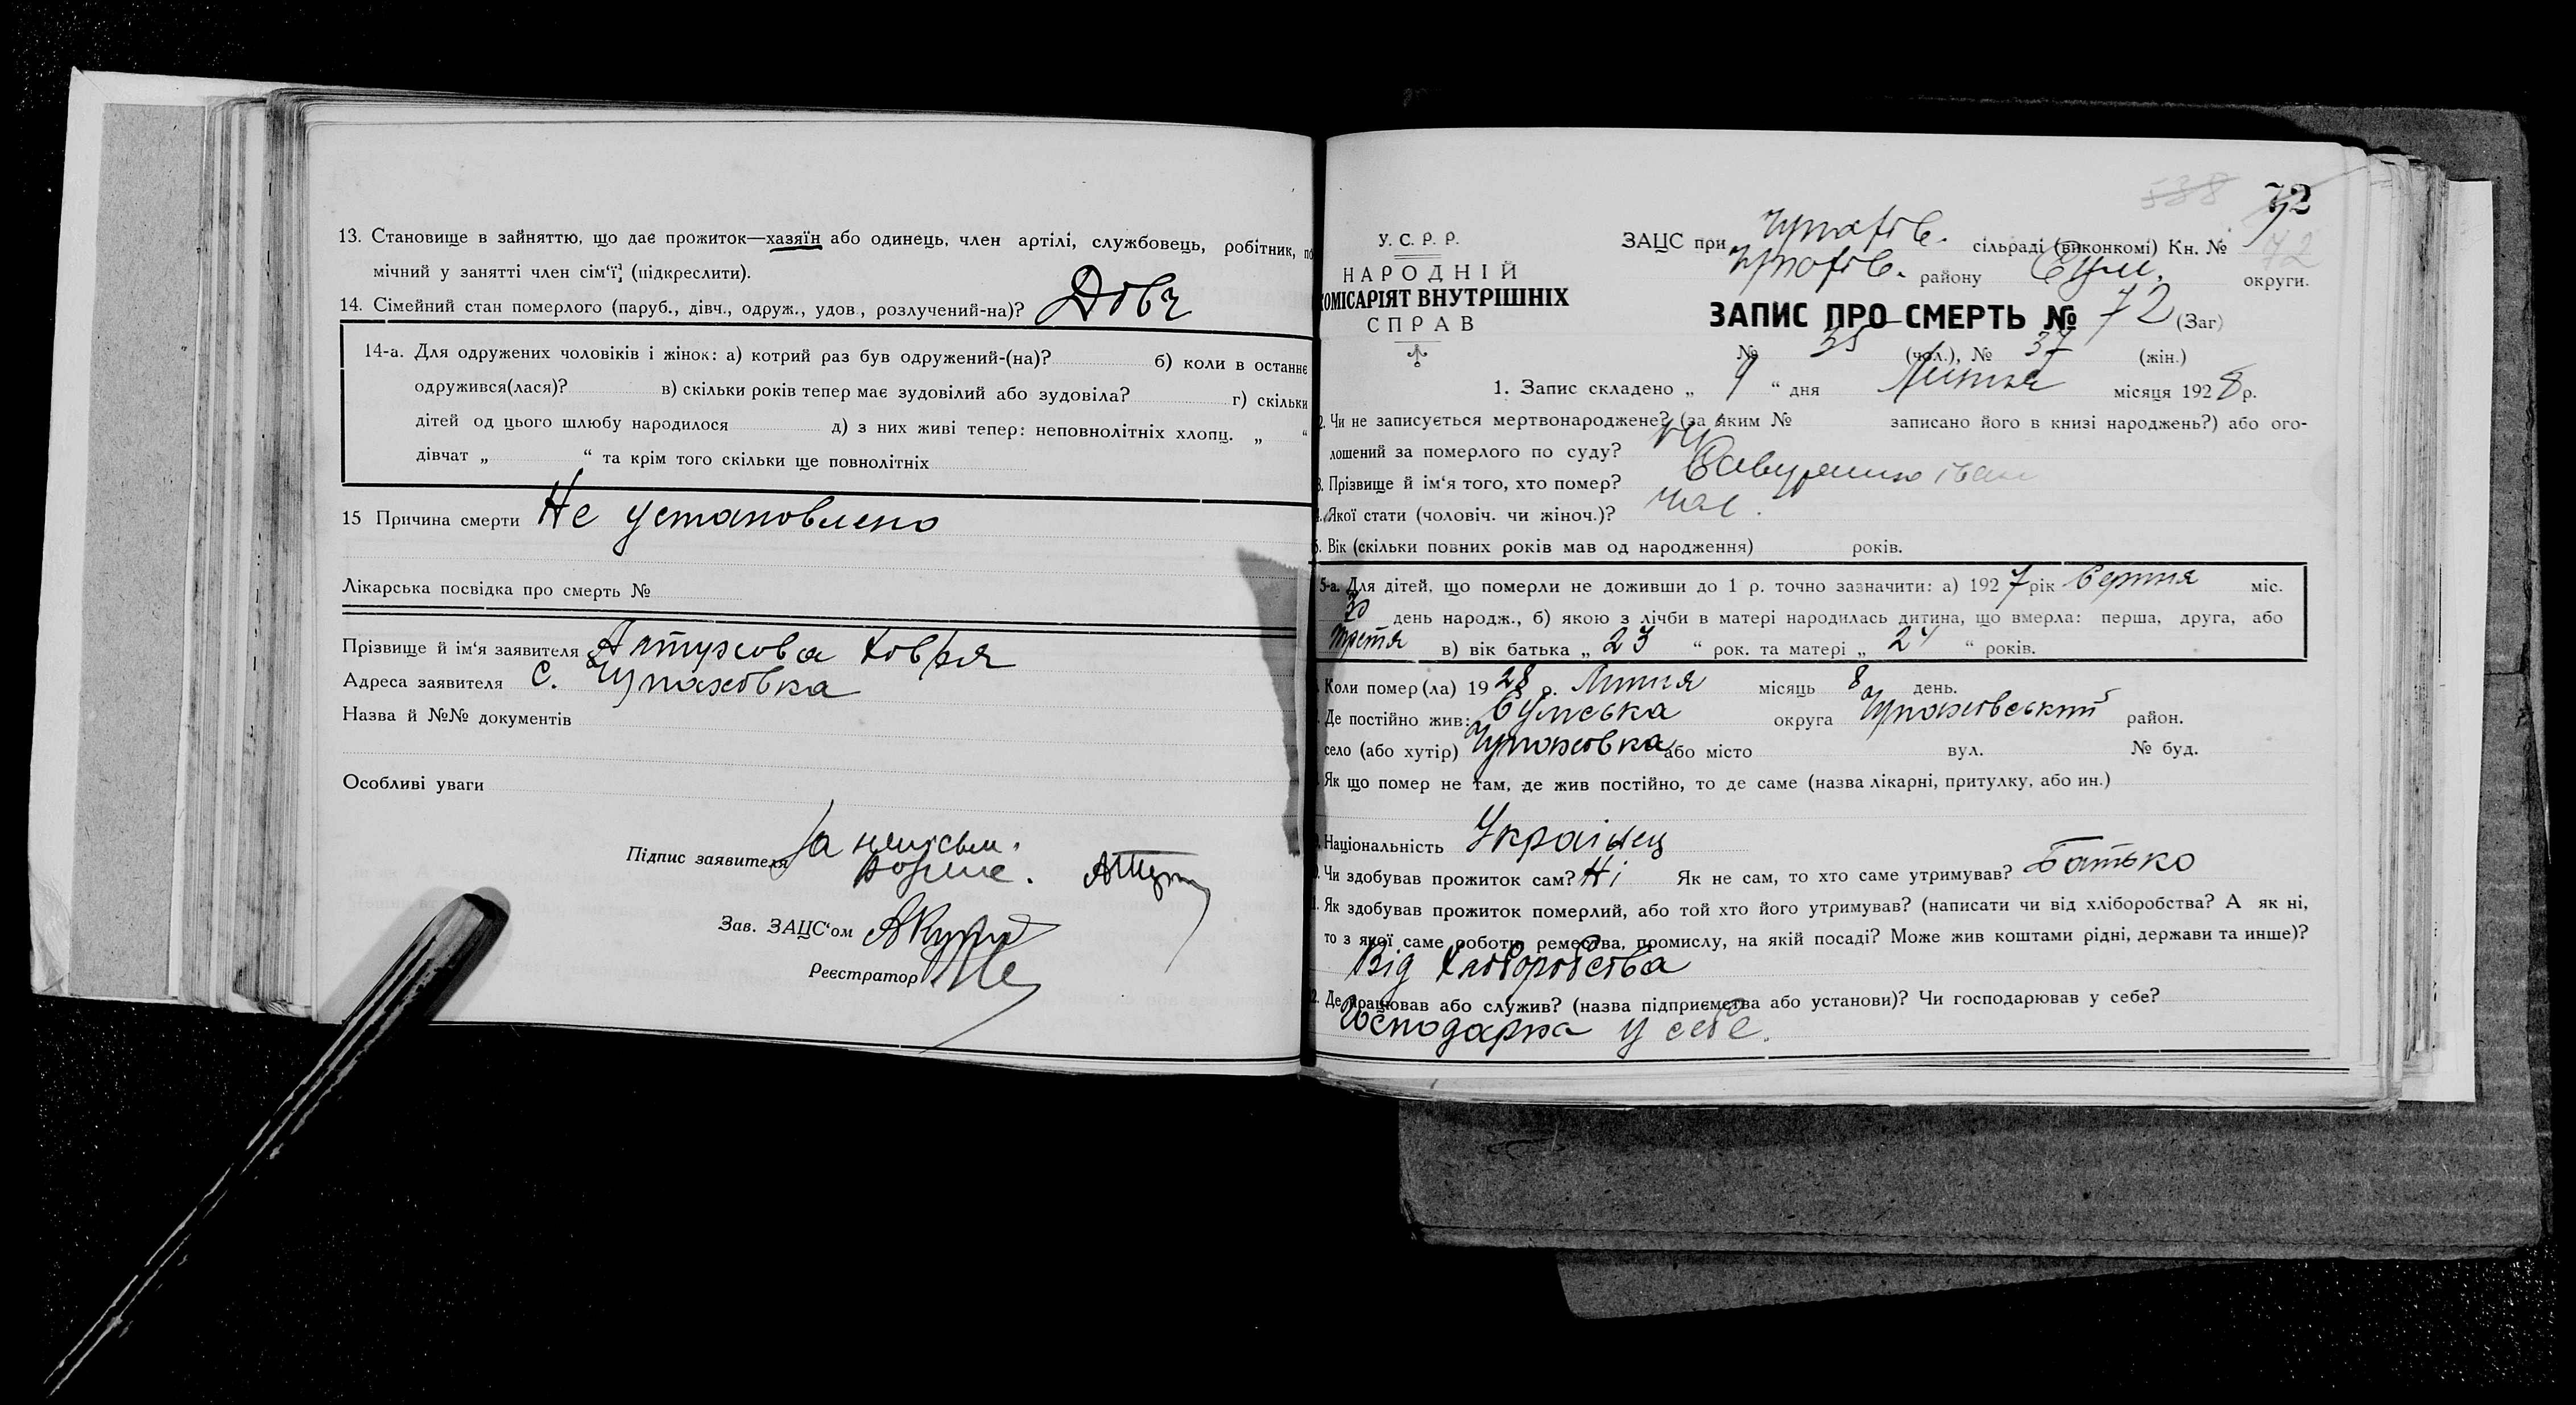 13. Становище в зайняттю, що дає прожиток—хазяїн або одинець, член артілі, службовець, робітник, по
мічний у занятті член сім'ї, (підкреслити).
14. Сімейний стан померлого (паруб., дівч., одруж., удов., розлучений-на)? Довч
14-а. Для одружених чоловіків і жінок: а) котрий раз був одружений-(на)? б) коли в останнє
одружився(лася)? в) скільки років тепер має зудовілий або зудовіла? г) скільки
дітей од цього шлюбу народилося д) з них живі тепер: неповнолітніх хлопц. „ “
дівчат „ “ та крім того скільки ще повнолітніх
15 Причина смерти Не установлено
Лікарська посвідка про смерть №
Прізвище й ім'я заявителя
Адреса заявителя С. Чупаховка
Назва й №№ документів
Особливі уваги
Підпис заявителя За неписьм.
Зав. ЗАЦС'ом
Реєстратор
538 72
У. С. Р. Р.
НАРОДНІЙ
КОМІСАРІЯТ ВНУТРІШНІХ
СПРАВ
ЗАЦС при Чупахів. сільраді (виконкомі) Кн. № 72
Чупахів. району Сум. округи.
ЗАПИС ПРО СМЕРТЬ № 72 (Заг)
№ 35 (чол.), № 37 (жін.)
1. Запис складено „ 9 “ дня Липня місяця 1928 р.
2. Чи не записується мертвонароджене? (за яким № записано його в книзі народжень?) або ого-
лошений за померлого по суду? Ні
3. Прізвище й ім'я того, хто помер? Іван
4. Якої стати (чоловіч. чи жіноч.)? чол.
5. Вік (скільки повних років мав од народження) років.
5-а. Для дітей, що померли не доживши до 1 р. точно зазначити: а) 1927 рік Серпня міс.
30 день народж., б) якою з лічби в матері народилась дитина, що вмерла: перша, друга, або
третя в) вік батька „ 23 “ рок. та матері „ 24 “ років.
Коли помер(ла) 1928 р. Липня місяць 8 день.
Де постійно жив: Сумська округа Чупаховський район.
село (або хутір) Чупаховка або місто вул. № буд.
Як що помер не там, де жив постійно, то де саме (назва лікарні, притулку, або ин.)
Національність Українец
Чи здобував прожиток сам? Ні Як не сам, то хто саме утримував? Батько
Як здобував прожиток померлий, або той хто його утримував? (написати чи від хліборобства? А як ні,
то з якої саме роботи, ремества, промислу, на якій посаді? Може жив коштами рідні, держави та инше)?
Від хліборобства
Де працював або служив? (назва підприємства або установи)? Чи господарював у себе?
Господарка у себе.